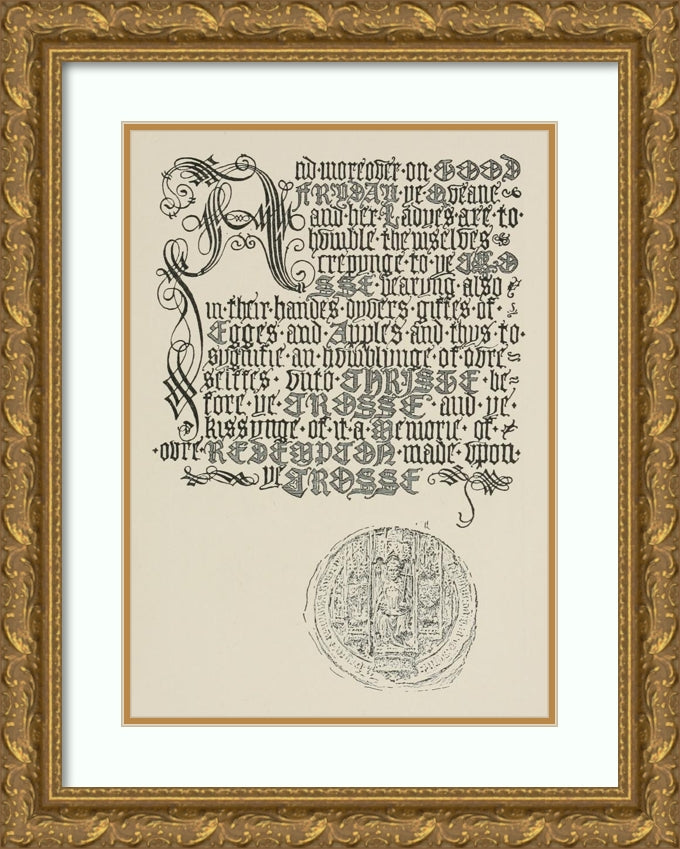 And·moreover·on·GOOD
FRYDAY·ye·Qveane
and·her·Ladyes·are·to·
hvmble·themselves
crepynge·to·ye·CRO
SSE·bearyng·also
in·their·handes·dyvers·giftes·of·
Egges·and·Apples·and·thys·to·
sygnifie·an·hvmblynge·of·ovre
selffes·vnto·CHRISTE·be=
fore·ye·CROSSE·and·ye·
kissynge·of·it·a·Memorie·of·
·ovre·REDEMPTON·made·vpon·
ye CROSSE